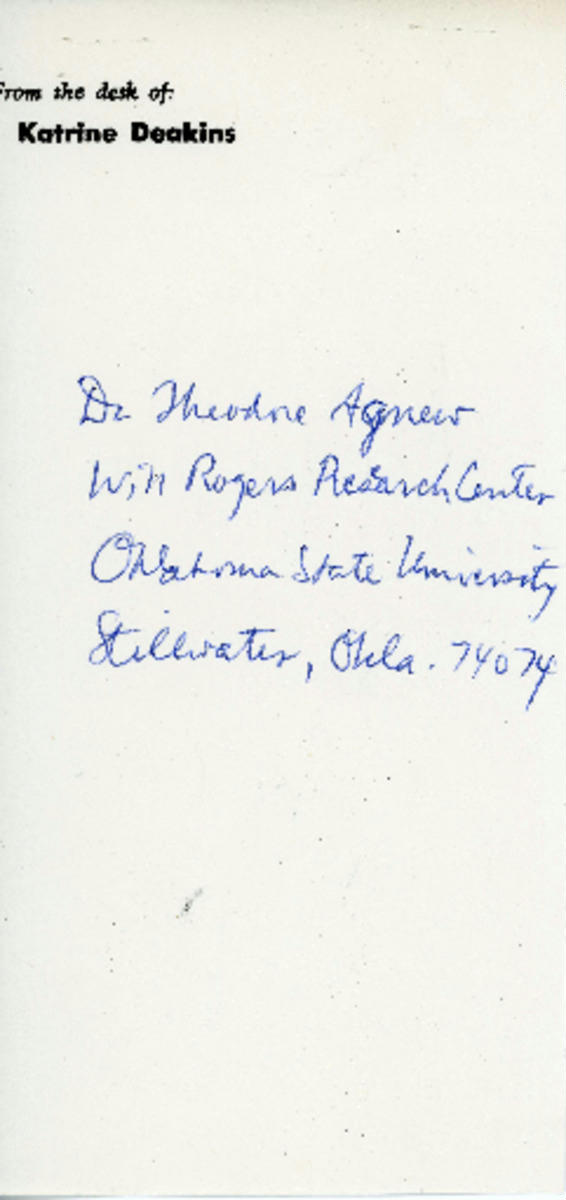 From the desk of:
Katrine Deakins
Dr Theodore Agnew
Will Rogers Research Center
Oklahoma State University
Stillwater, Okla. 74074